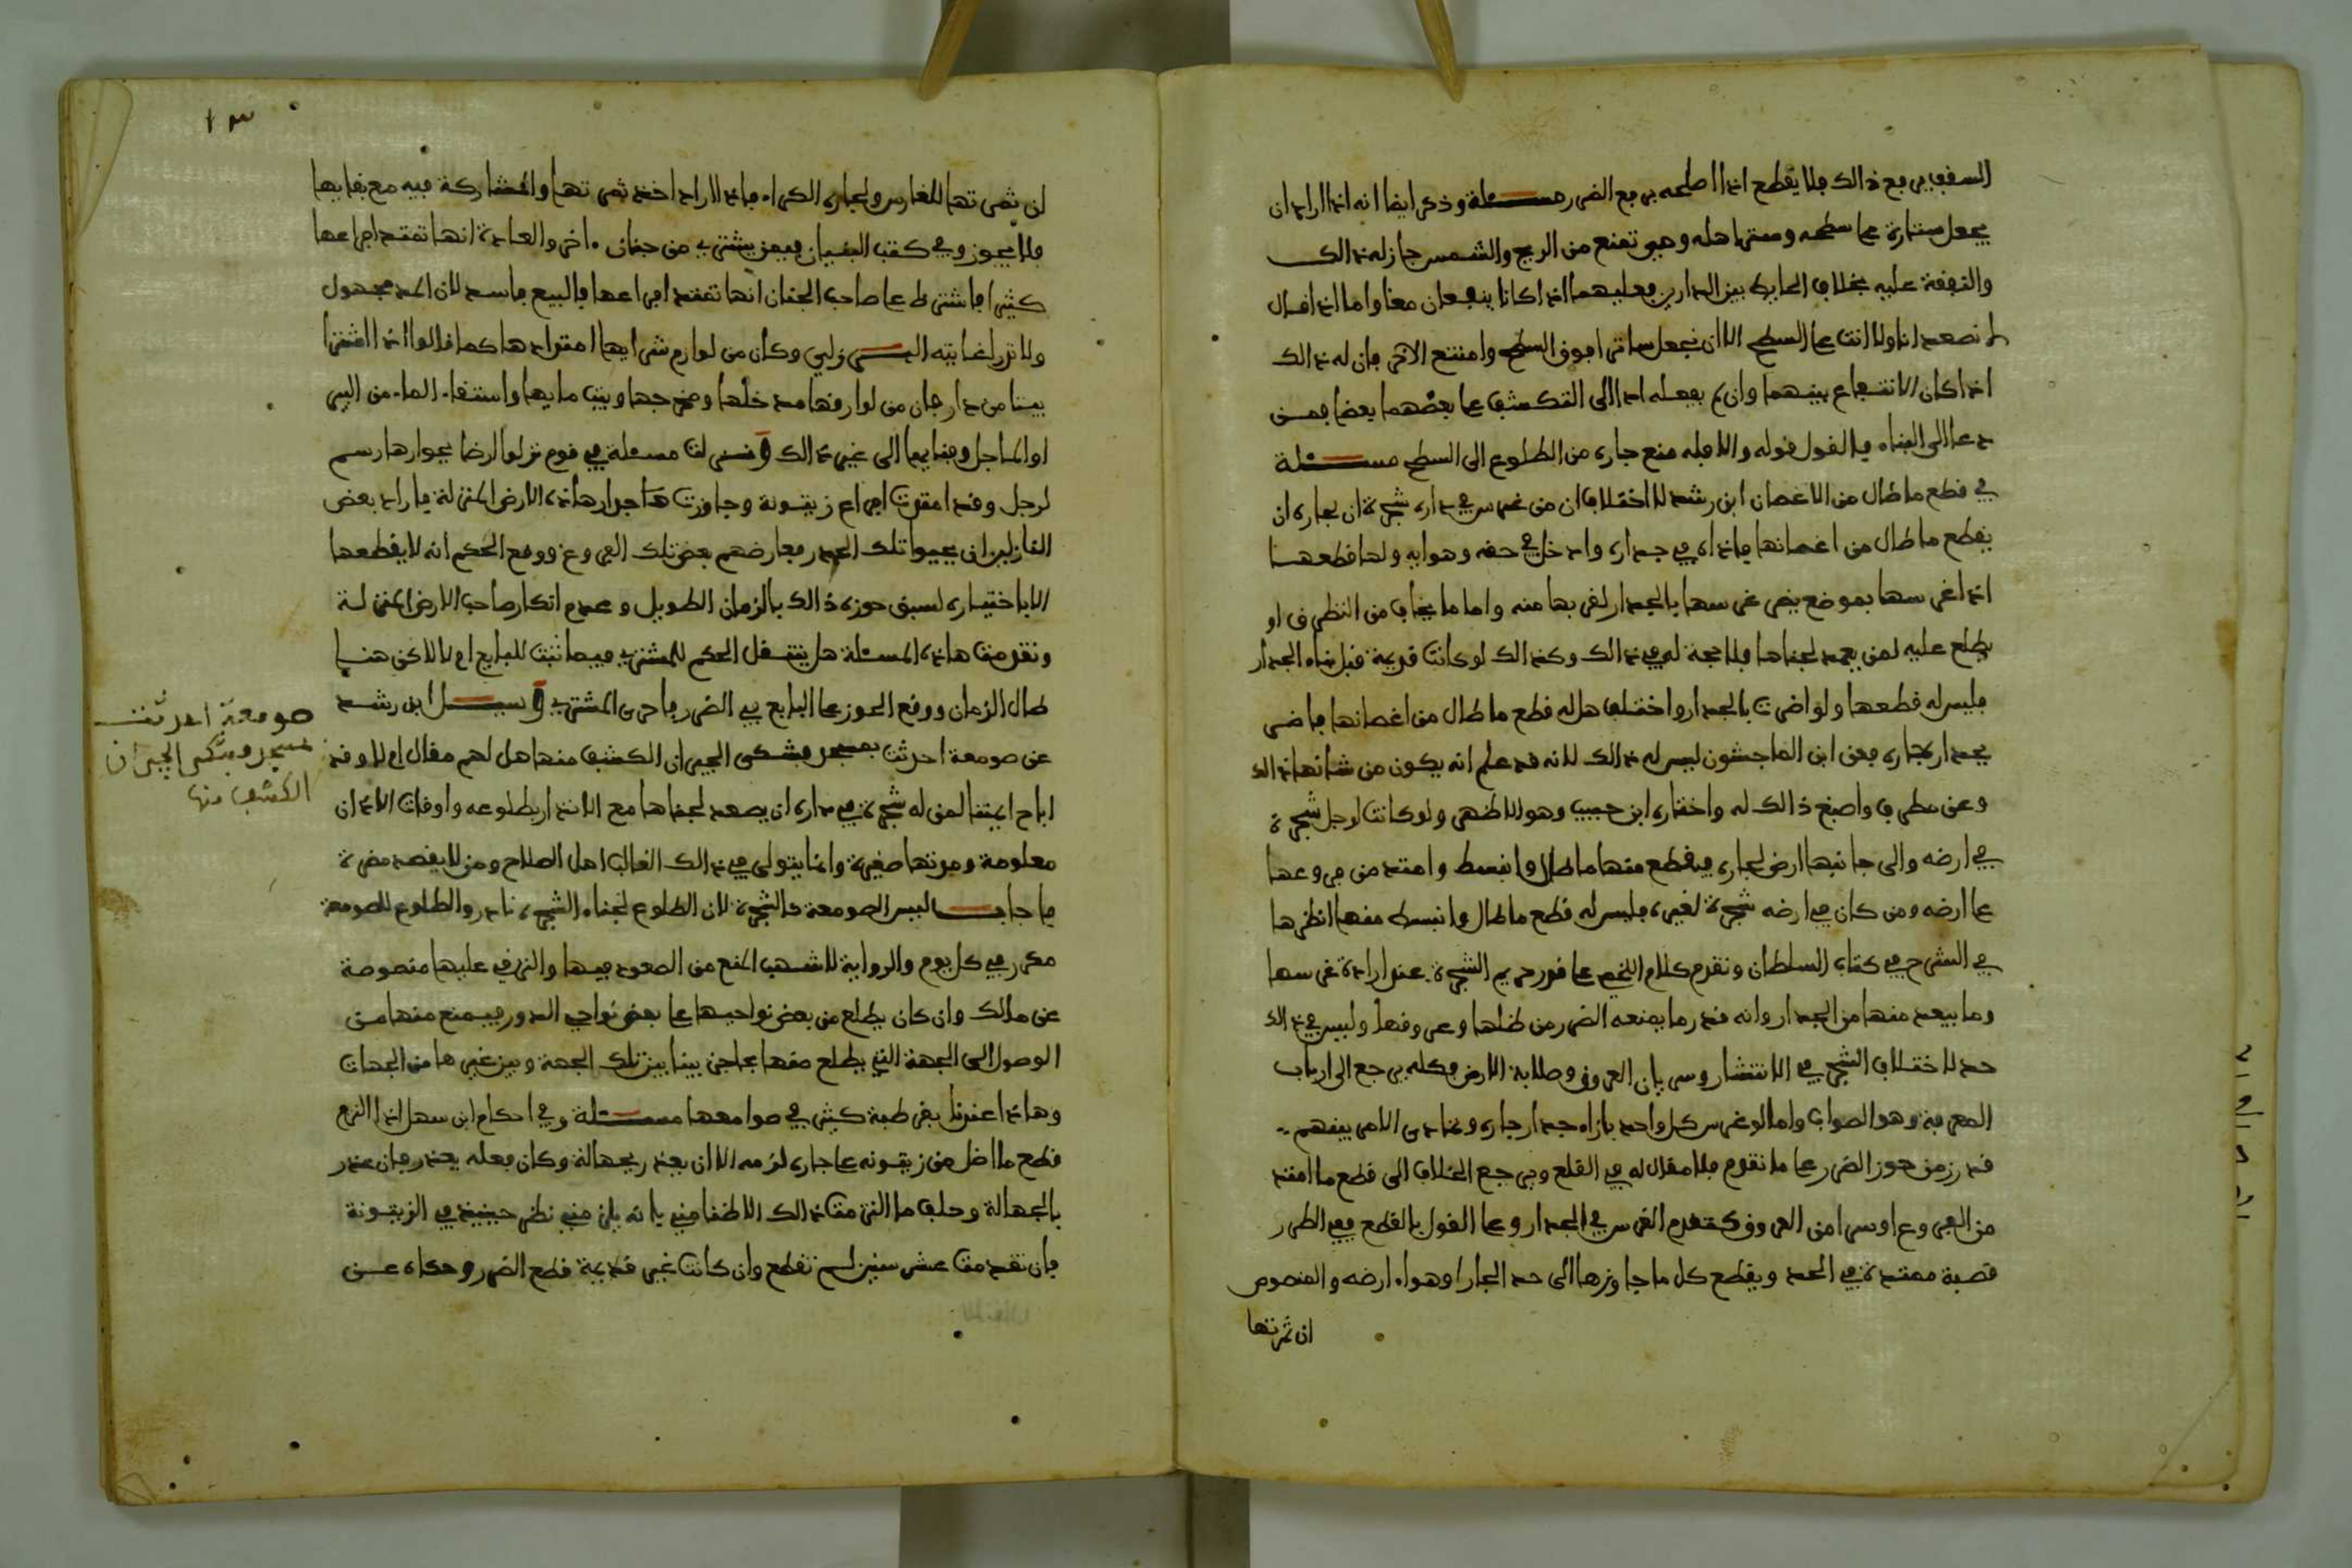 السقف يرفع ذالك فلا يقطع اذا اصلحه برفع الضرر مسئلة وذكر ايضا انه اذا اراد ان
يجعل ستارة على سطحه وسترا هله وهي تمنع من الريح والشمس جاز له ذالك
والنفقة عليه بخلاف الحايط بين الدارين فعليهما اذا كانا ينتفعان معا واما اذا قال
لا نصعد انا ولا انت على السطح الا ان نجعل ساترا فوق السطح وامتنع الاخر فان له ذالك
اذا كان الانتفاع بينهما وان لم يفعله ادا الى التكشف على بعضهما بعضا فمن
دعا الى البناء فالقول قوله والا فله منع جاره من الطلوع الى السطح مسئلة
في قطع ما طال من الاغصان ابن رشد لا اختلاف ان من غرس في داره شجرة ان لجاره ان
يقطع ما طال من اغصانها فاذاه في جداره وادخل في حقه وهوايه ولها قطعها
اذا غرسها بموضع يضر غرسها بالجدار لقربها منه واما ما يخاف من التطرف او
يطلع عليه لمن يصعد لجناها فلا حجة له في ذالك وكذالك لو كانت قديمة قبل بناء الجدار
فليس له قطعها ولو اضرت بالجدار واختلف هل له قطع ما طال من اغصانها فاضر
بجدار جاره فعن ابن الماجشون ليس له ذالك لانه قد علم انه يكون من شانها ذالك
وعن مطرف واصبغ ذالك له واختاره ابن حبيب وهو الاظهر ولو كانت لرجل شجرة
في ارضه والى جانبها ارض لجاره فيقطع منها ما طال وانبسط وامتد من فروعها
على ارضه ومن كان في ارضه شجرة لغيره فليس له قطع ما طال وانبسط منها انظرها
في الشرح في كتاب السلطان وتقدم كلام اللخمي على قدر حريم الشجرة عند ارادة غرسها
وما يبعد منها من الجدار وانه قدر ما يمنعه الضرر من ظلها وعروقها وليس في ذالك
حد لاختلاف الشجر في الانتشار وسريان العروق وصلابة الارض فكله يرجع الى ارباب
المعرفة وهو الصواب واما لو غرس كل واحد بازاء جدار جاره وتمادى الامر بينهم
قدر زمن حوز الضرر على ما تقدم فلا مقال له في القلع ويرجع الخلاف الى قطع ما امتد
من الفروع او سرا من العروق كتقدم الغرس في الجدار وعلى القول بالقطع ففي الطرر
قصبة ممتدة في الحد ويقطع كل ما جاوزها الى حد الجار او هواء ارضه والمنصوص
ان ثمرتها
١٣
ان ثمرتها للغارس ولجاره الكراء فاذا اراد اخذ ثمرتها والمشاركة فيه مع بقايها
فلا يجوز وفي كتب البنيان فيمن يشترى من جنان اخر والعادة انها تمتد فراعها
كثيرا فاشترط على صاحب الجنان انها تمتد افراعها فالبيع فاسد لان الحد مجهول
ولا تدر لغايته البرزلي وكان من لوازم شرايها امتدادها كما قالوا اذا اشترا
بيتا من دار فان من لوازمها مدخلها ومخرجها وبيت مايها واستقاء الماء من البير
او الماجل وفنايها الى غير ذالك ونزلت مسئلة في قوم نزلوا ارضا بجوارها رسم
لرجل وقد امتدت افراع زيتونة وجاوزت جدار هاذه الارض المنزلة فاراد بعض
النازلين ان يحيوا تلك الجدر فعارضهم بعض تلك الفروع ووقع الحكم انه لا يقطعها
الا باختياره لسبق حوزه ذالك بالزمان الطويل وعدم انكار صاحب الارض المنزلة
وتقدمت هاذه المسئلة هل ينتقل الحكم للمشتري فيما ثبت للبايع او لا لاكن هنا
طال الزمان ووقع الحوز على البايع في الضرر فاحرى المشتري وسيل ابن رشد
عن صومعة احدثت بمسجد فشكى الجيران الكشف منها هل لهم مقال او لا وقد
اباح ايمتنا لمن له شجرة في داره ان يصعد لجناها مع الانذار بطلوعه واوقات الاذان
معلومة ومدتها صغيرة وانما يتولى في ذالك الغالب اهل الصلاح ومن لا يقصد مضرة
فاجاب ليس الصومعة كالشجرة لان الطلوع لجناء الشجرة نادر والطلوع للصومعة
مكرر في كل يوم والرواية لاشهب المنع من الصعود فيها والترقي عليها منصوصة
عن مالك وان كان يطلع من بعض نواحيها على بعض نواحي الدور فيمنع منها من
الوصول الى الجهة التي يطلع منها بحاجز يبنا بين تلك الجهة وبين غيرها من الجهات
وهاذا عندنا بقرطبة كثير في صوامعها مسئلة وفي احكام ابن سهل اذا التزم
قطع ما اضل من زيتونه على جاره لزمه الا ان يعذر بجهالة وكان فعله يعذر فان عذر
بالجهالة وحلف ما التزمت ذالك الا ظنا مني بانه يلزمني نظر حينيذ في الزيتونة
فان تقدمت عشر سنين لم تقطع وان كانت غير قديمة قطع الضرر وحكاه عن
صومعة احدثت
بمسجد فيشكى الجيران
الكشف منها